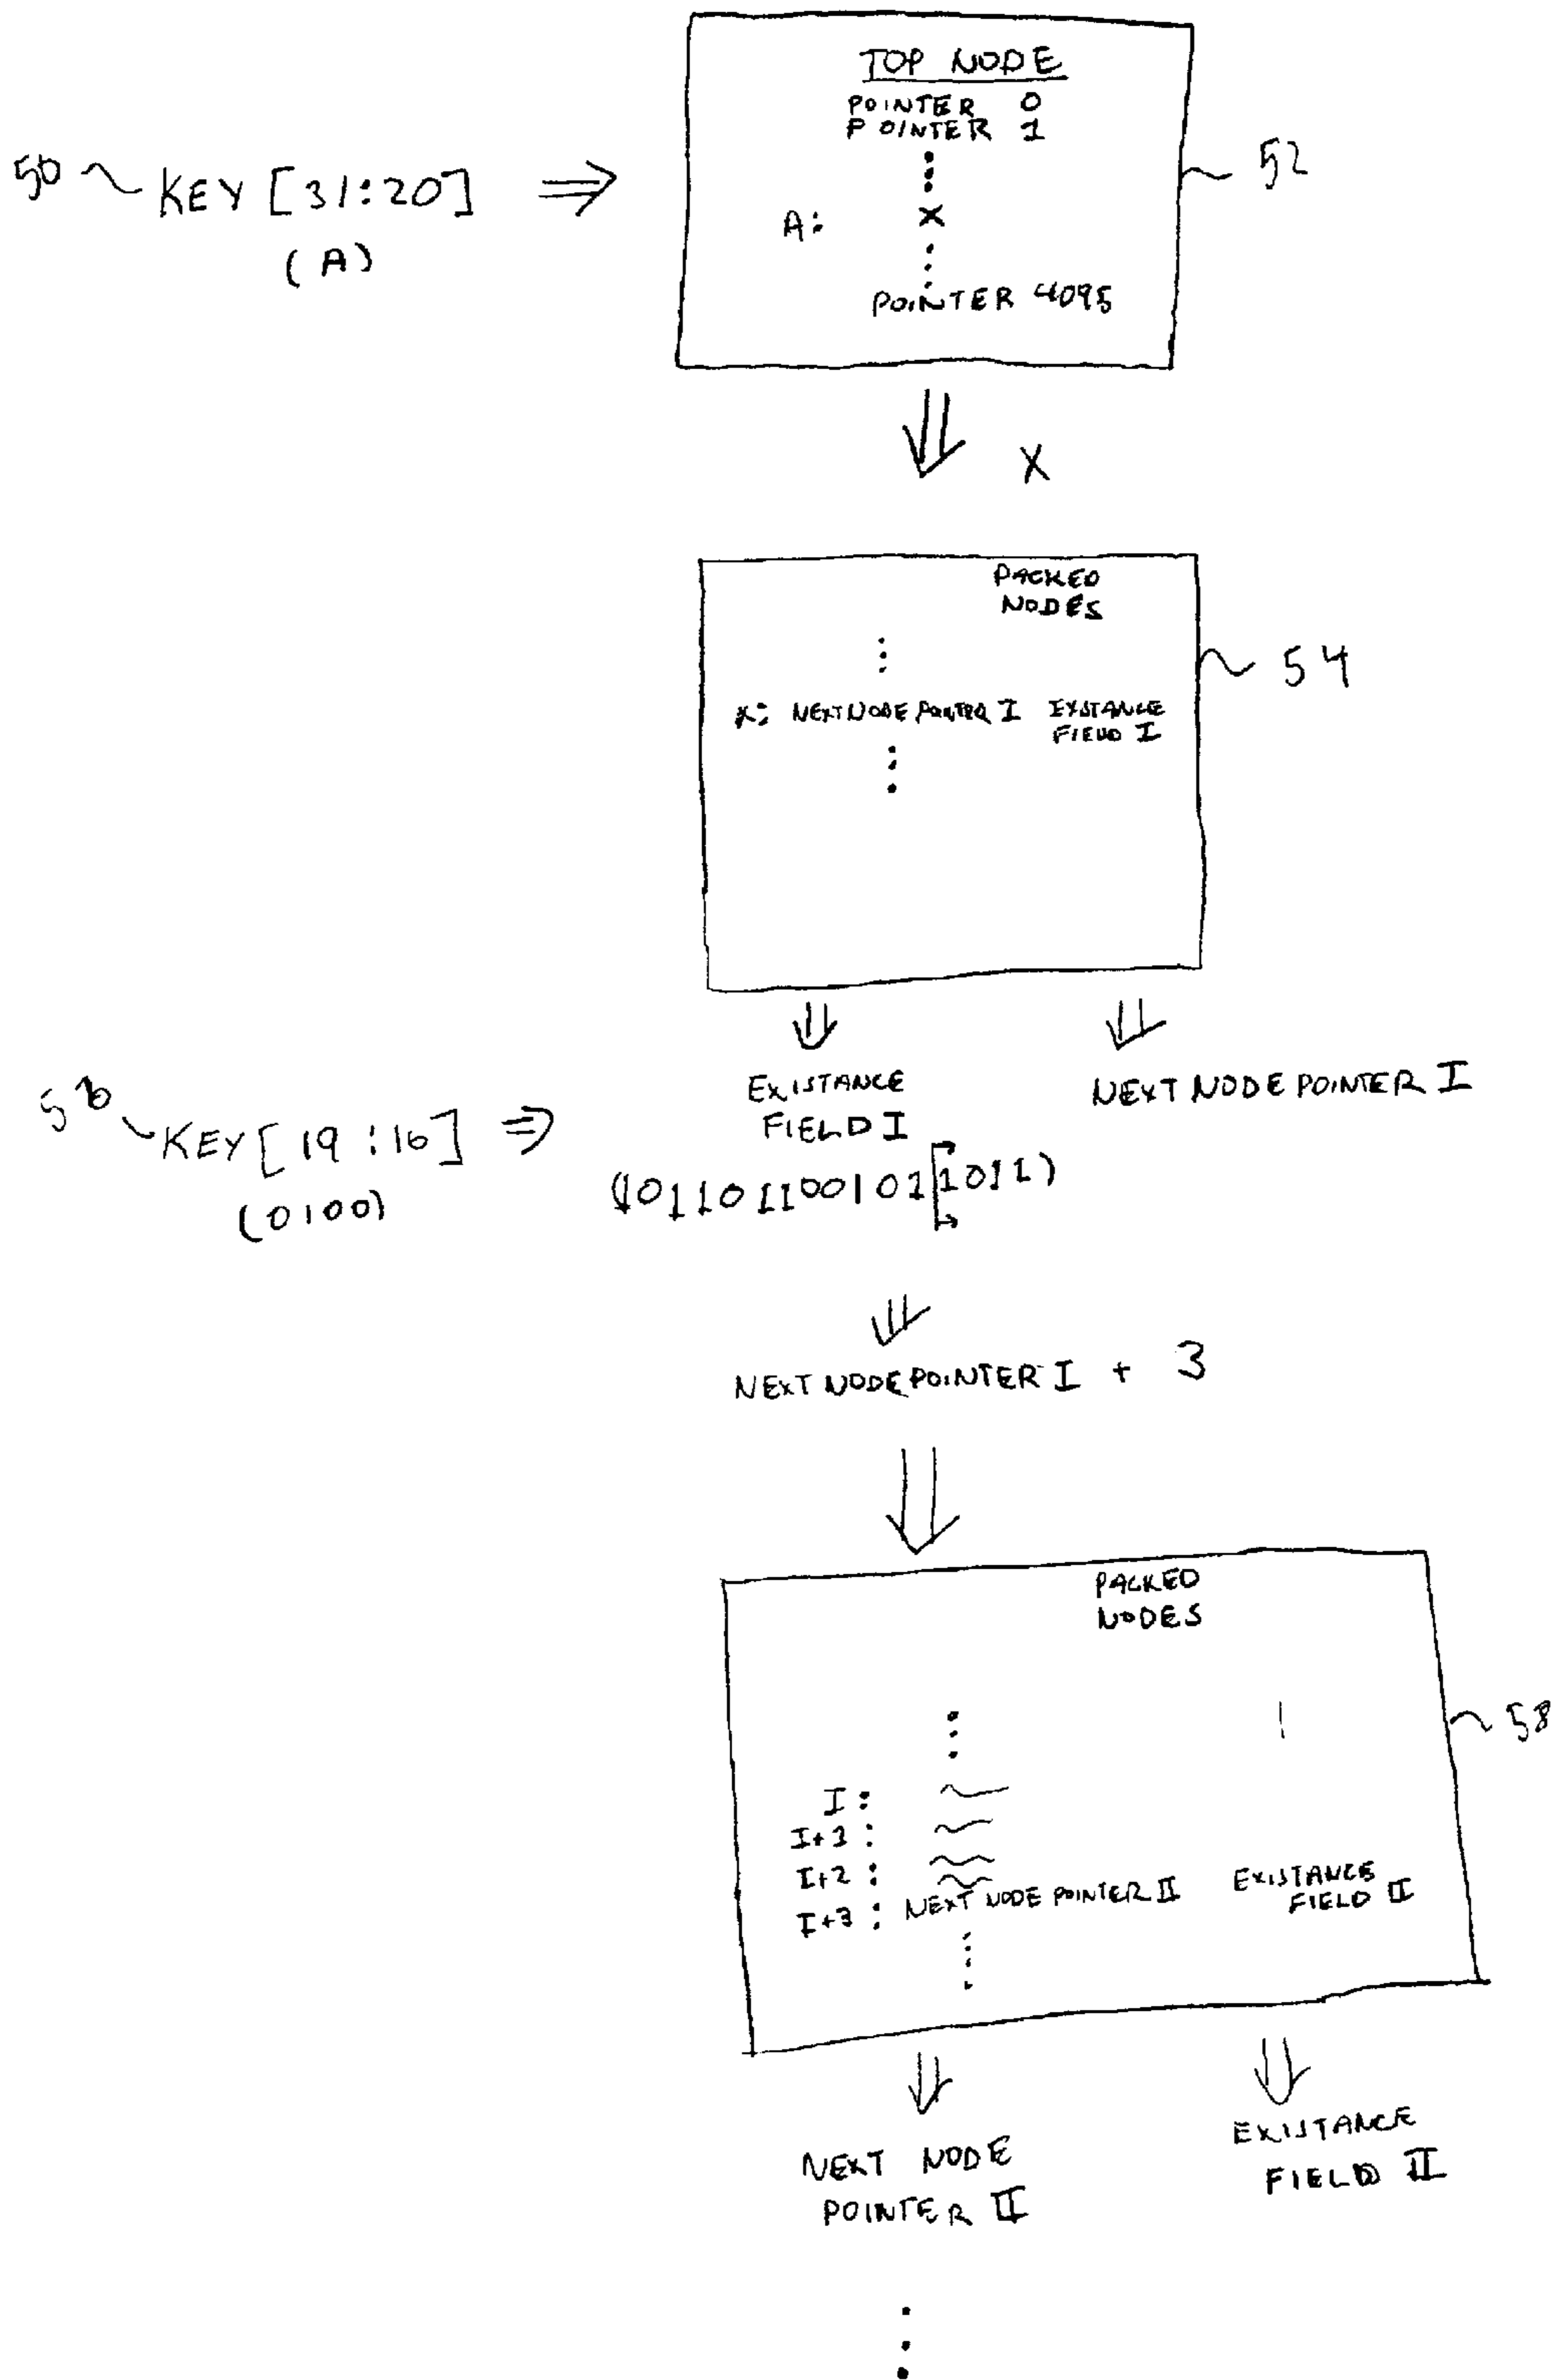 TOP NODE
POINTER 0
POINTER 1
50 KEY [31:20]
(A)
52
A: X
POINTER 4095
X
PACKED
NODES
54
X: NEXT NODE POINTER I EXISTANCE
FIELD I
EXISTANCE
FIELD I
NEXT NODE POINTER I
KEY [19:16]
(0100)
(1011011001011011)
NEXT NODE POINTER I + 3
PACKED
NODES
58
I:
I+1:
I+2:
I+3: NEXT NODE POINTER II EXISTANCE
FIELD II
NEXT NODE
POINTER II
EXISTANCE
FIELD II